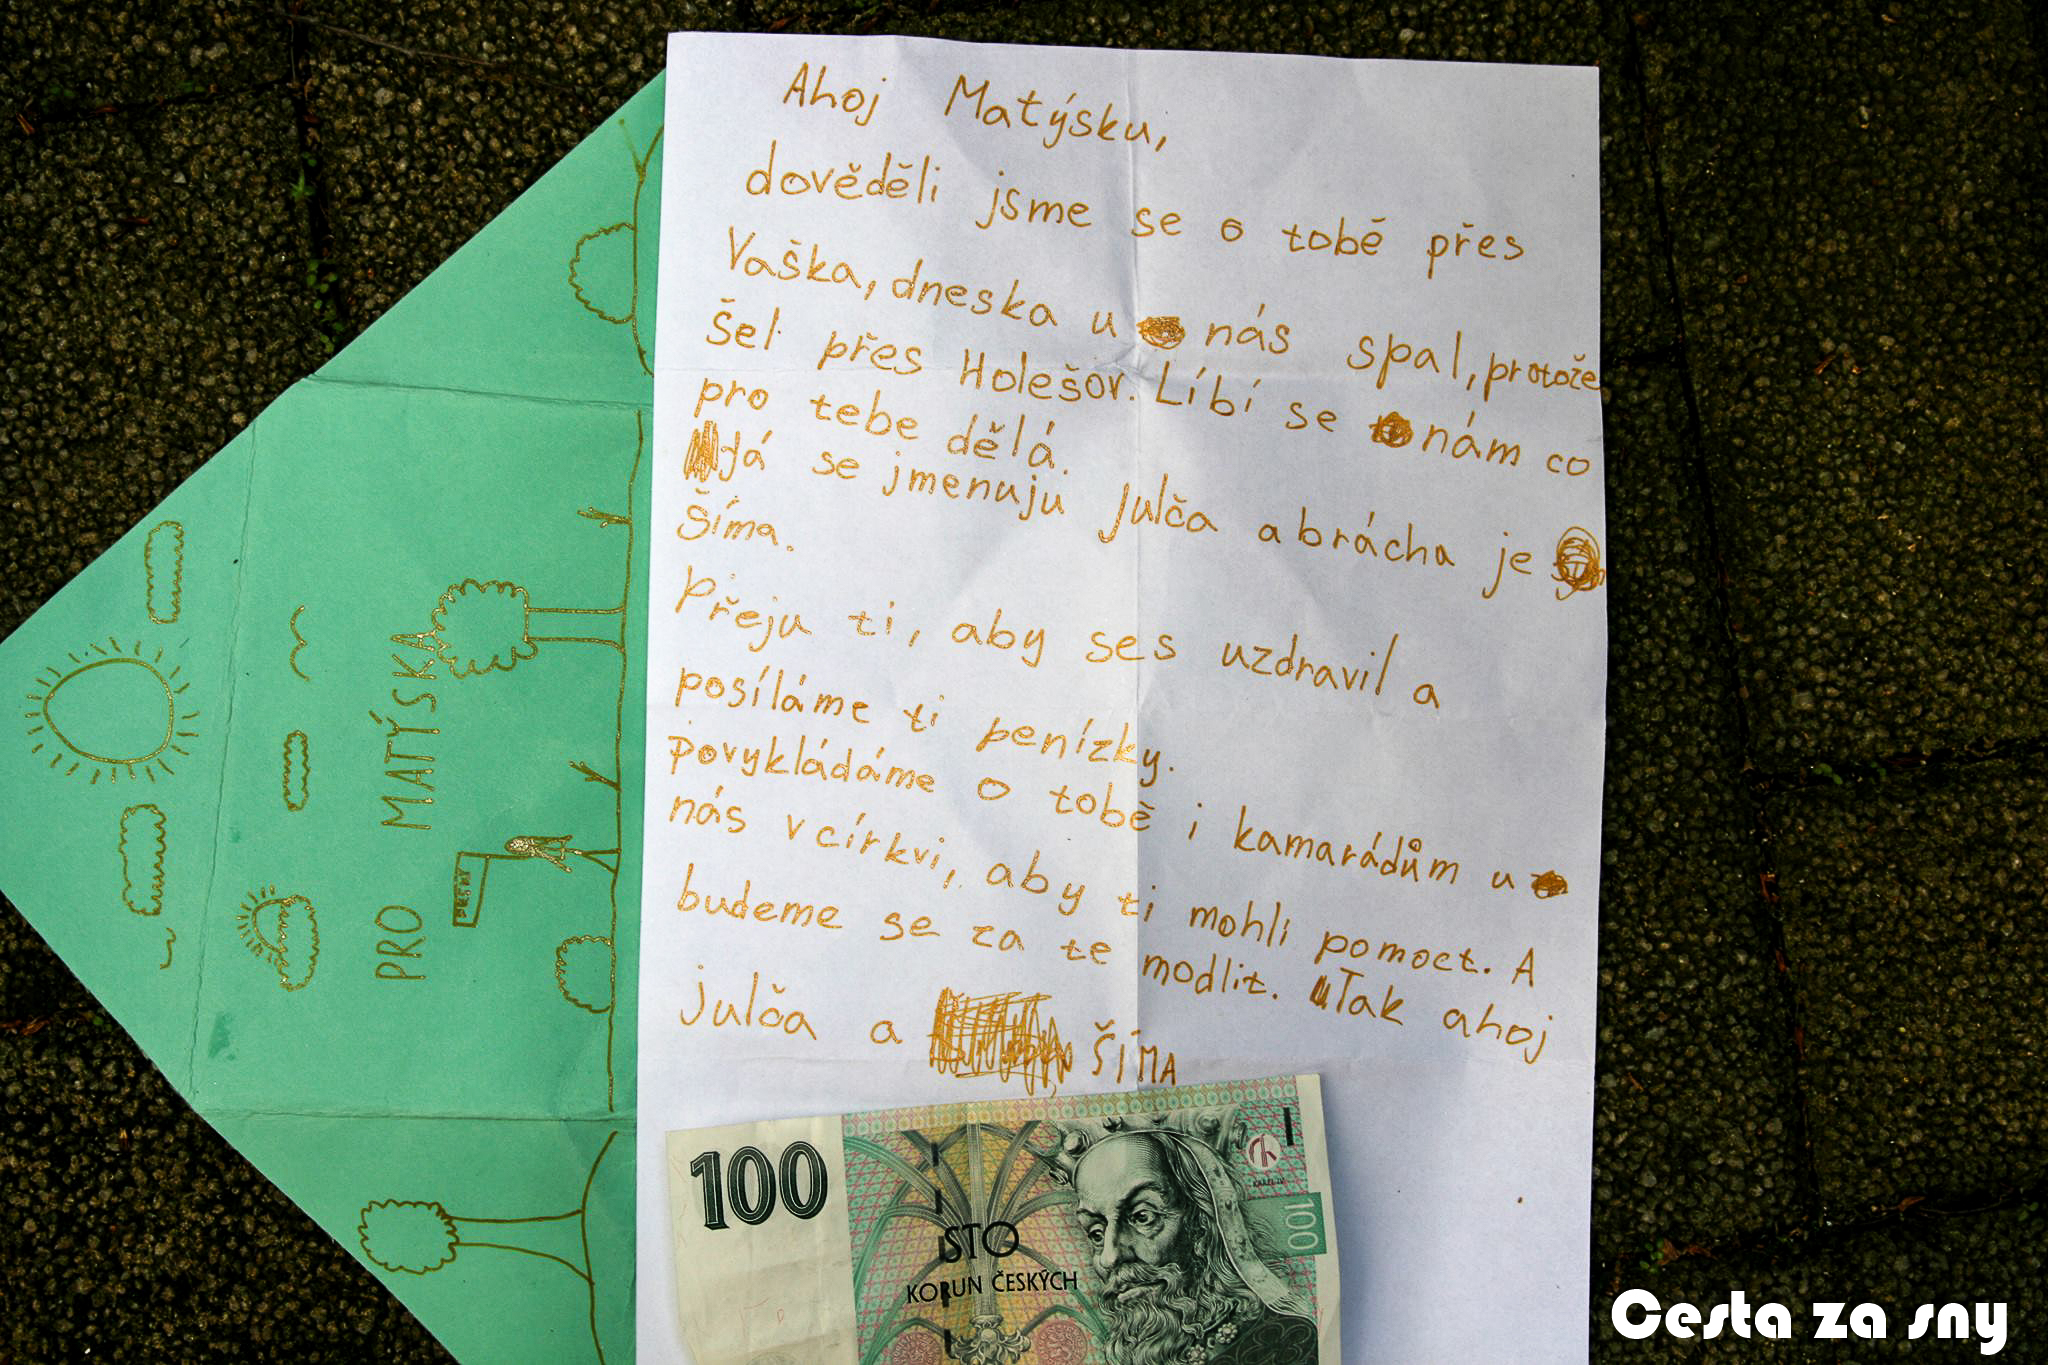 Ahoj Matýsku,
dověděli jsme se o tobě přes
Vaška, dneska u nás spal, protože
šel přes Holešov. Líbí se nám co
pro tebe dělá.
Já se jmenuju Julča a brácha je
Šíma.
Přeju ti, aby ses uzdravil a
posíláme ti penízky.
povykládáme o tobě i kamarádům u
nás v církvi, aby ti mohli pomoct. A
budeme se za te modlit. Tak ahoj
Julča a ŠÍMA
PRO MATÝSKA
100
STO
KORUN ČESKÝCH
KAREL IV.
100
Cesta za sny